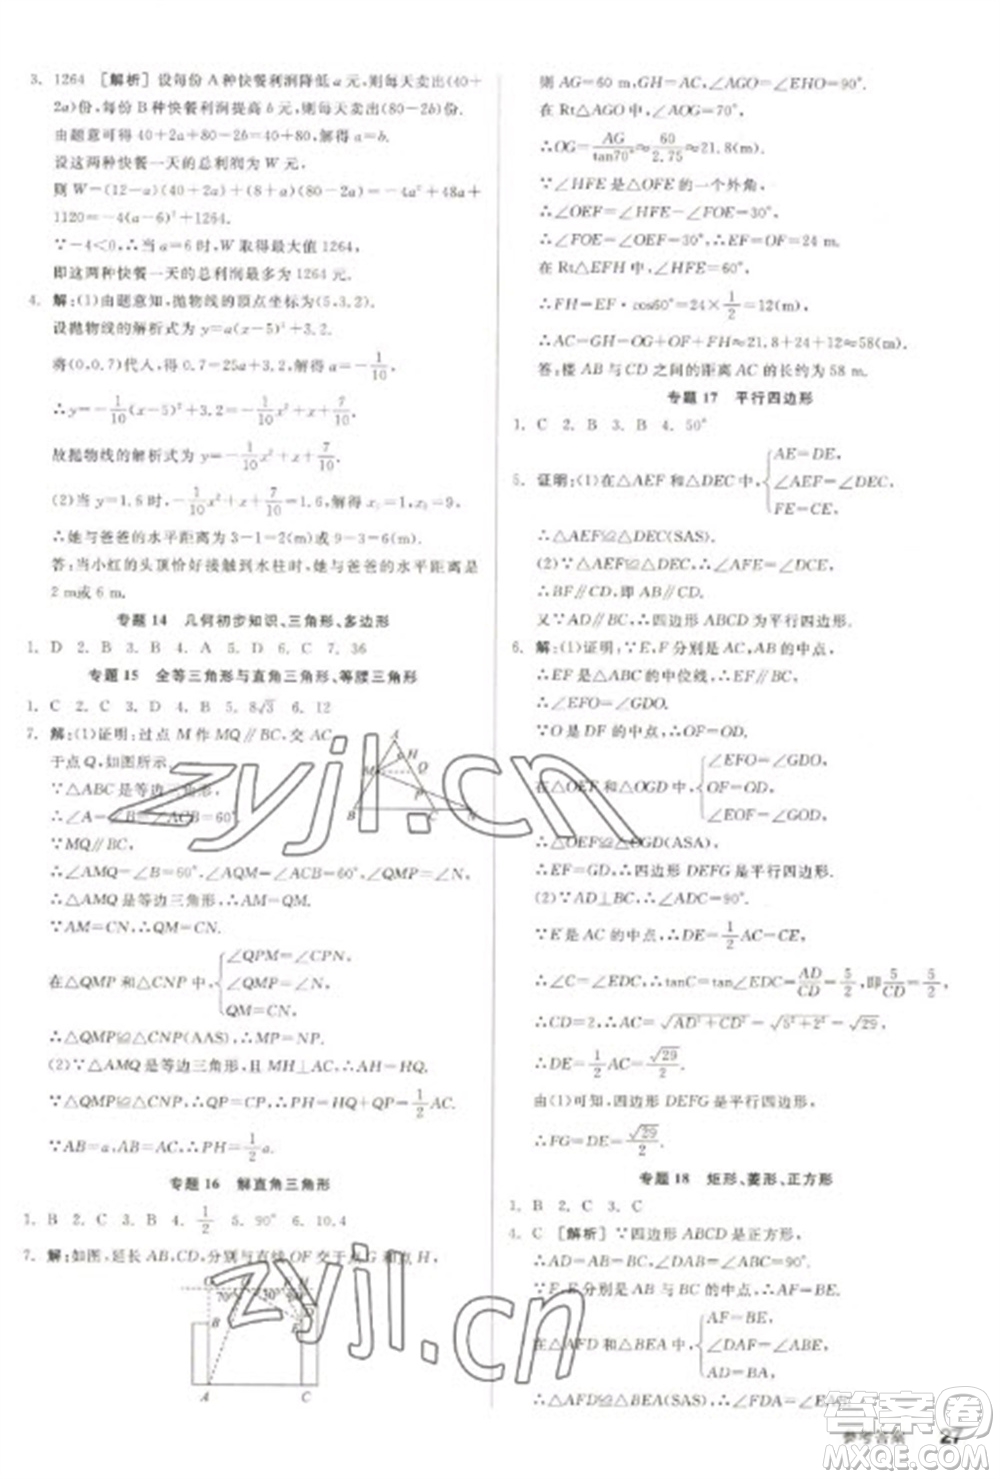 3. 1264 [解析]设每份A种快餐利润降低a元,则每天卖出(40+
2a)份,每份B种快餐利润提高b元,则每天卖出(80-2b)份.
由题意可得40+2a+80-2b=40+80,解得a=b.
设这两种快餐一天的总利润为W元.
则W=(12-a)(40+2a)+(8+a)(80-2a)=-4a²+48a+
1120=-4(a-6)²+1264.
∵-4<0,∴当a=6时,W取得最大值1264,
即这两种快餐一天的总利润最多为1264元.
4. 解:(1)由题意知,抛物线的顶点坐标为(5,3.2),
设抛物线的解析式为y=a(x-5)²+3.2.
将(0,0.7)代入,得0.7=25a+3.2,解得a=-1/10,
∴y=-1/10(x-5)²+3.2=-1/10x²+x+7/10.
故抛物线的解析式为y=-1/10x²+x+7/10.
(2)当y=1.6时,-1/10x²+x+7/10=1.6,解得x₁=1,x₂=9,
∴她与爸爸的水平距离为3-1=2(m)或9-3=6(m).
答:当小红的头顶恰好接触到水柱时,她与爸爸的水平距离是
2 m或6 m.
专题14 几何初步知识、三角形、多边形
1. D 2. D 3. B 4. A 5. B 6. C 7. 36
专题15 全等三角形与直角三角形、等腰三角形
1. C 2. C 3. D 4. B 5. 8√3 6. 12
7. 解:(1)证明:过点M作MQ∥BC,交AC
于点Q,如图所示.
∵△ABC是等边三角形,
∴∠A=∠B=∠ACB=60°.
∵MQ∥BC,
∴∠AMQ=∠B=60°,∠QMP=∠CNP,
∴△AMQ是等边三角形,∴AM=QM.
∵AM=CN,∴QM=CN.
在△QMP和△CNP中,{∠QPM=∠CPN, ∠QMP=∠CNP, QM=CN,
∴△QMP≌△CNP(AAS),∴MP=NP.
(2)∵△AMQ是等边三角形,且MH⊥AC,∴AH=HQ.
∵△QMP≌△CNP,∴QP=CP,∴PH=HQ+QP=1/2AC.
∵AB=a,AB=AC,∴PH=1/2a.
专题16 解直角三角形
1. B 2. D 3. B 4. 1/2 5. 90° 6. 10.4
7. 解:如图,延长AB,CD,分别与直线OF交于点G和点H,
则AG=60 m,GH=AC,∠AGO=∠EHO=90°.
在Rt△AGO中,∠AOG=70°,
∴OG=AG/tan70°≈60/2.75≈21.8(m).
∵∠HFE是△OFE的一个外角,
∴∠OEF=∠HFE-∠FOE=30°,
∴∠FOE=∠OEF=30°,∴OF=EF=24 m.
在Rt△EFH中,∠HFE=60°,
∴FH=EF·cos60°=24×1/2=12(m),
∴AC=GH=OG+OF+FH≈21.8+24+12≈58(m).
答:楼AB与CD之间的距离AC的长约为58 m.
专题17 平行四边形
1. C 2. B 3. B 4. 50°
5. 证明:(1)在△AEF和△DEC中,{AE=DE, ∠AEF=∠DEC, FE=CE,
∴△AEF≌△DEC(SAS).
(2)∵△AEF≌△DEC,∴∠AFE=∠DCE,
∴BF∥CD,即AB∥CD.
又∵AD∥BC,∴四边形ABCD为平行四边形.
6. 解:(1)证明:∵E,F分别是AC,AB的中点,
∴EF是△ABC的中位线,∴EF∥BC,
∴∠EFO=∠GDO.
∵O是DF的中点,∴OF=OD.
在△OEF和△OGD中,{∠EFO=∠GDO, OF=OD, ∠EOF=∠GOD,
∴△OEF≌△OGD(ASA),
∴EF=GD,∴四边形DEFG是平行四边形.
(2)∵AD⊥BC,∴∠ADC=90°.
∵E是AC的中点,∴DE=1/2AC=CE,
∴∠C=∠EDC,∴tanC=tan∠EDC=AD/CD=5/2,即5/CD=5/2,
∴CD=2,∴AC=√(AD²+CD²)=√(5²+2²)=√29,
∴DE=1/2AC=√29/2.
由(1)可知,四边形DEFG是平行四边形,
∴FG=DE=√29/2.
专题18 矩形、菱形、正方形
1. B 2. C 3. C
4. C [解析]∵四边形ABCD是正方形,
∴AD=AB=BC,∠DAF=∠ABE=90°.
∵E,F分别是BC,AB的中点,∴AF=BE.
在△AFD和△BEA中,{AF=BE, ∠DAF=∠ABE, AD=BA,
∴△AFD≌△BEA(SAS),∴∠FDA=∠EAB.
参考答案 27
A
H
M Q
P
B C N
G O F H
70° 30° 60°
D
B E
A C
zyjl.cn
zyjl.cn
答案圈